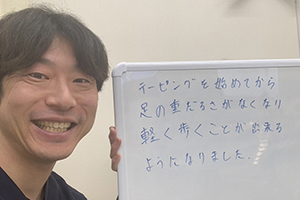 テーピングを始めてから
足の重だるさがなくなり
軽く歩くことが出来る
ようになりました.